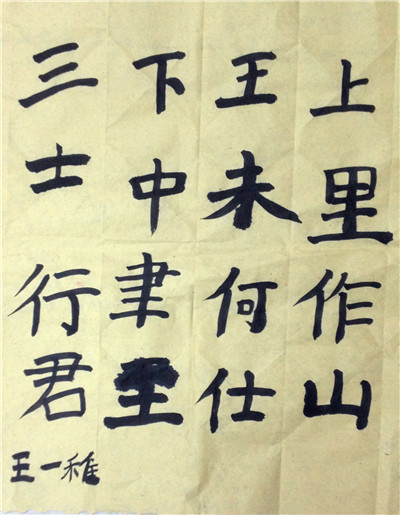 上里作山
王未何仕
下中聿
三士行君
王一稚